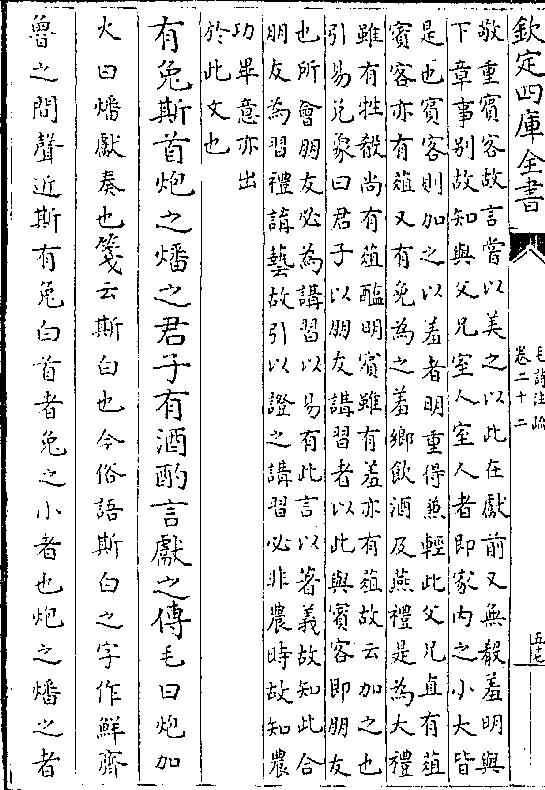 欽定四庫全書
毛詩注疏
卷二十二
敬重賓客故言嘗以美之以此在獻前又無殽羞明與
下章事別故知與父兄室人室人者即家内之小大皆
是也賓客則加之以羞者明重得兼輕此父兄直有葅
賓客亦有葅又有兔為之羞鄉飲酒及燕禮是為大禮
雖有牲殽尚有葅醢明賓雖有羞亦有葅故云加之也
引易兌象曰君子以朋友講習者以此與賓客即朋友
也所會朋友必為講習以易有此言以著義故知此合
朋友為習禮講藝故引以證之講習必非農時故知農
功畢意亦出
於此文也
有兔斯首炮之燔之君子有酒酌言獻之傳毛曰炮加
火曰燔獻奏也箋云斯白也今俗語斯白之字作鮮齊
魯之間聲近斯有兔白首者兔之小者也炮之燔之者